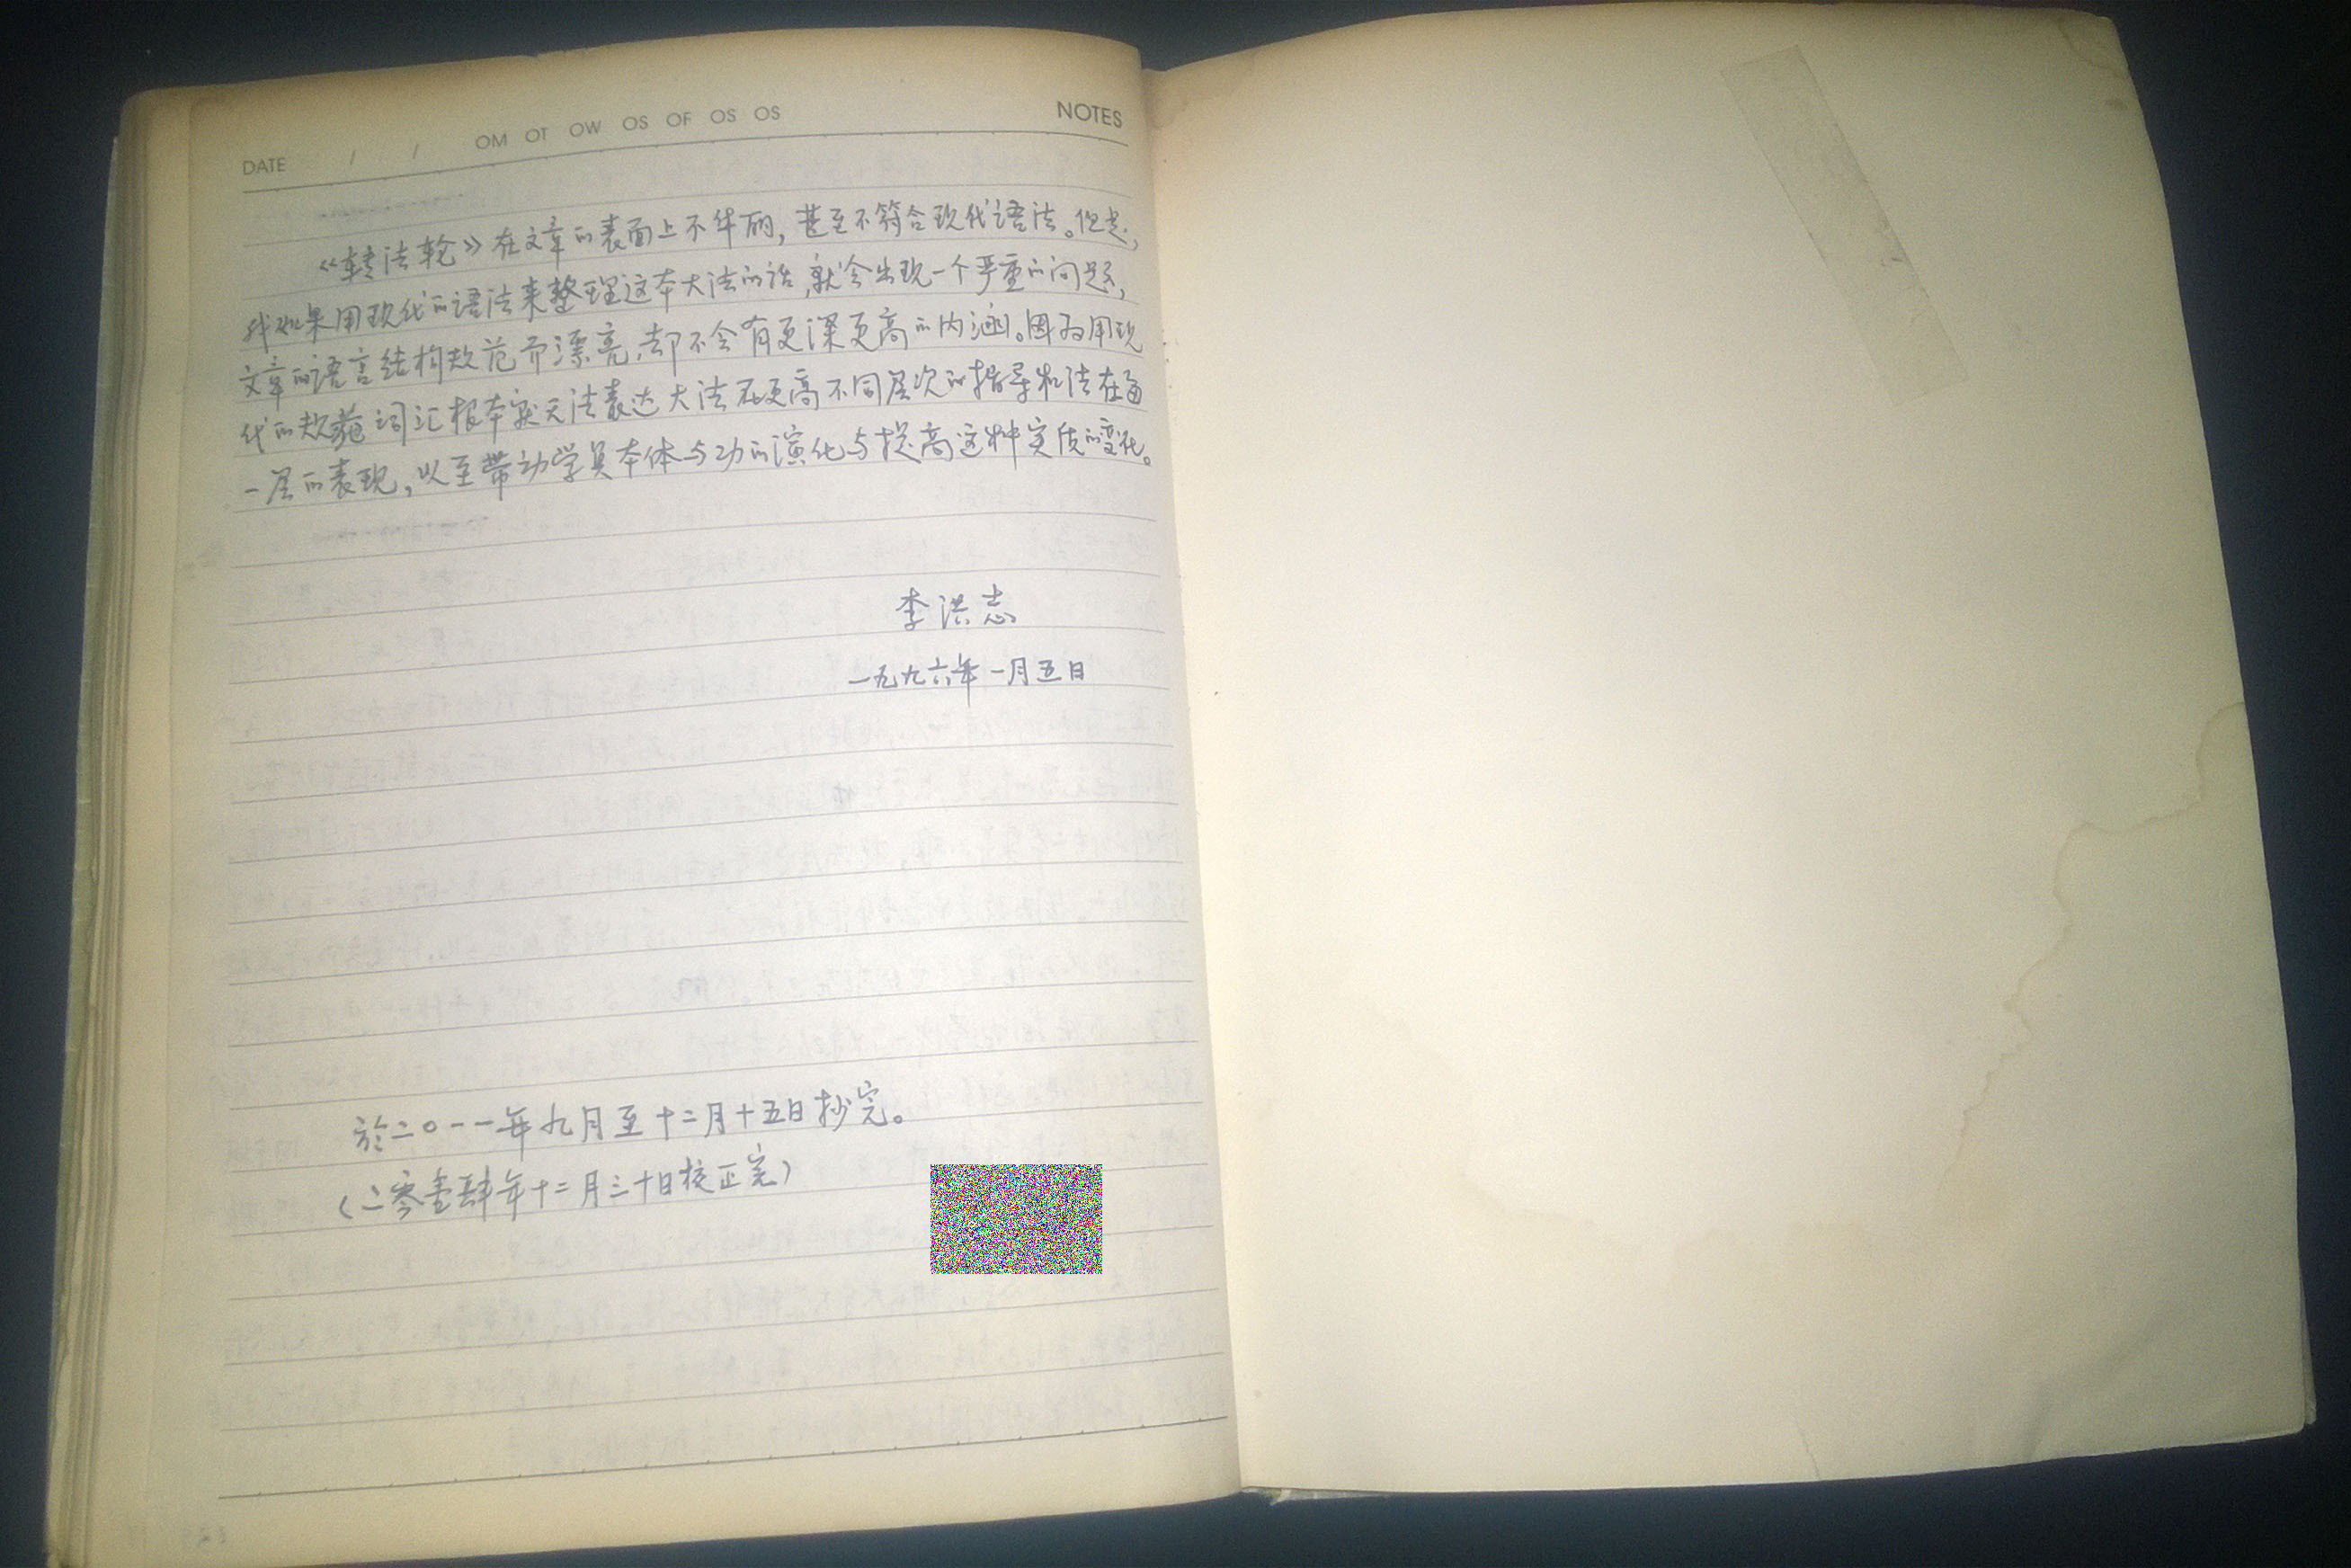 DATE / / OM OT OW OS OF OS OS NOTES
《转法轮》在文章的表面上不华丽，甚至不符合现代语法。但是，
我如果用现代的语法来整理这本大法的话，就会出现一个严重的问题，
文章的语言结构规范而漂亮，却不会有更深更高的内涵。因为用现
代的规范词汇根本就无法表达大法在更高不同层次的指导和法在每
一层的表现，以至带动学员本体与功的演化与提高这种实质的变化。
李洪志
一九九六年一月五日
於二〇一一年九月至十二月十五日抄完。
（二零壹肆年十二月三十日校正完）